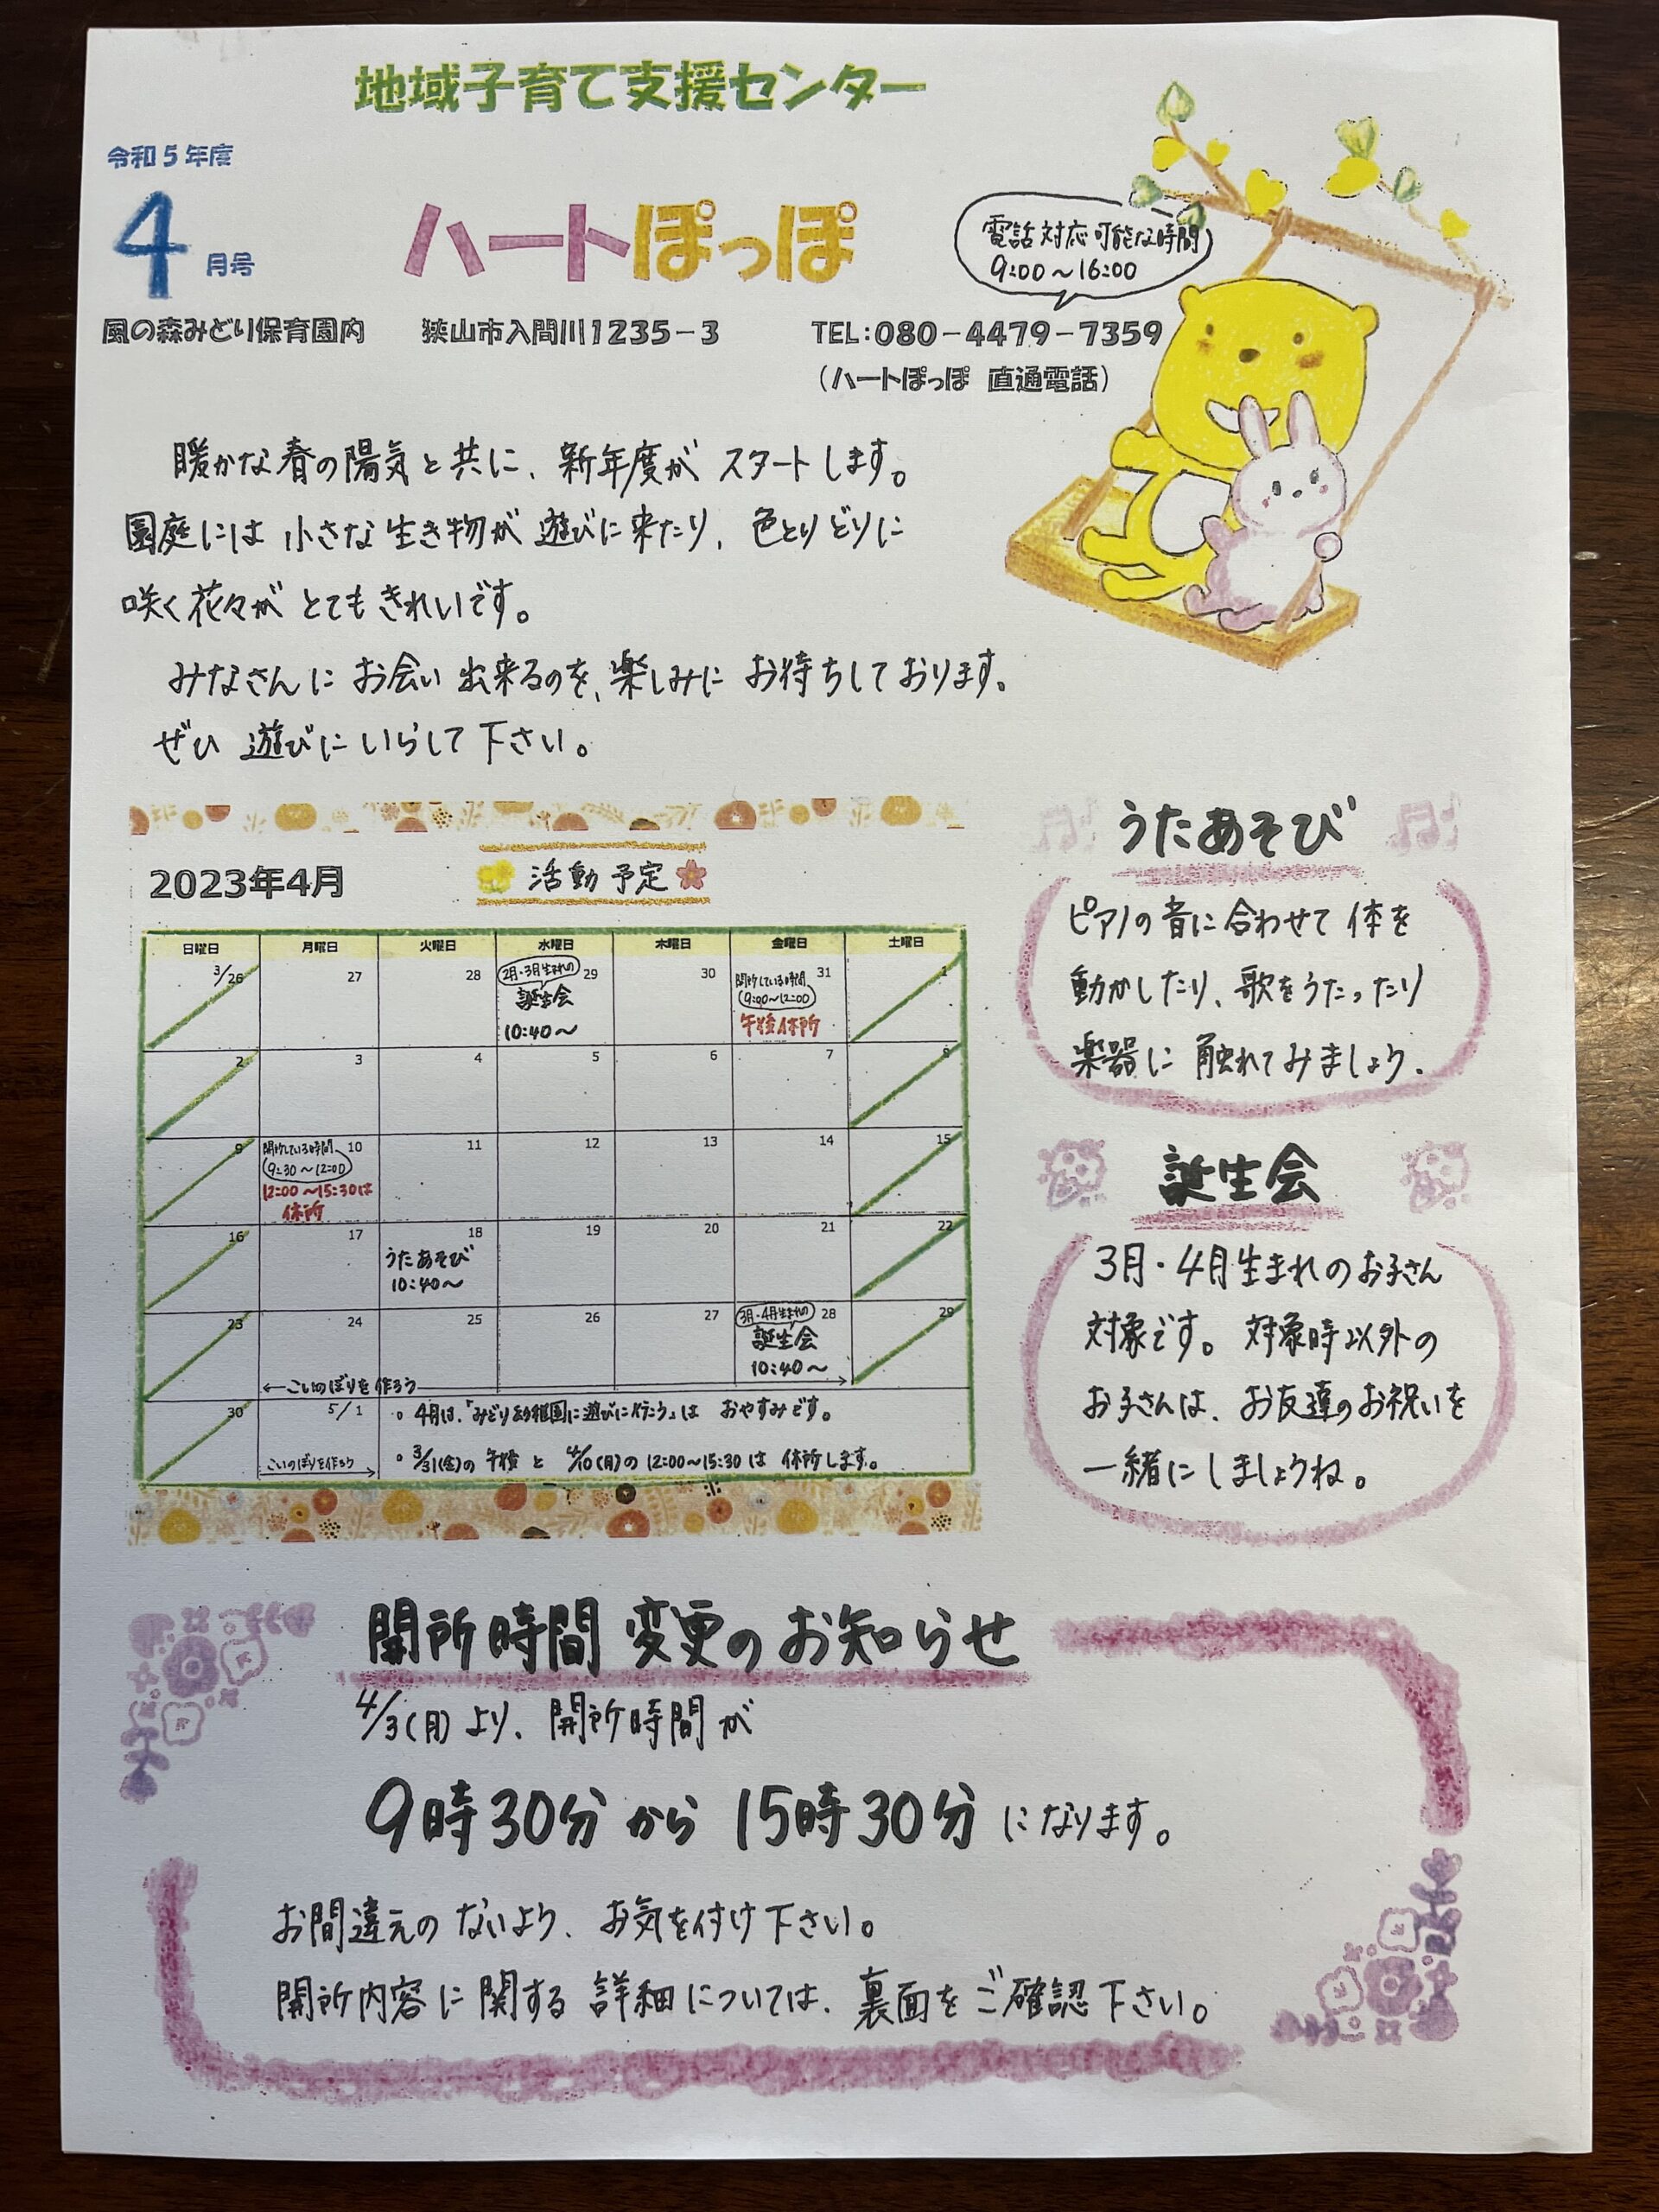 地域子育て支援センター
令和5年度
4月号
ハートぽっぽ
電話対応可能な時間
9:00～16:00
風の森みどり保育園内 狭山市入間川1235-3 TEL:080-4479-7359
(ハートぽっぽ 直通電話)
暖かな春の陽気と共に、新年度がスタートします。
園庭には小さな生き物が遊びに来たり、色とりどりに
咲く花々がとてもきれいです。
みなさんにお会い出来るのを、楽しみにお待ちしております。
ぜひ遊びにいらして下さい。
2023年4月
活動予定
日曜日 月曜日 火曜日 水曜日 木曜日 金曜日 土曜日
3/26 27 28 29 30 31 1
2月・3月生まれの
誕生会
10:40～
開所している時間
9:00～12:00
午後休所
2 3 4 5 6 7 8
9 10 11 12 13 14 15
開所している時間
9:30～12:00
12:00～15:30は
休所
16 17 18 19 20 21 22
うたあそび
10:40～
23 24 25 26 27 28 29
3月・4月生まれの
誕生会
10:40～
←こいのぼりを作ろう→
30 5/1
こいのぼりを作ろう
。4月は、「みどり幼稚園に遊びに行こう」は おやすみです。
・3/31(金)の午後と 4/10(月)の12:00～15:30は休所します。
うたあそび
ピアノの音に合わせて体を
動かしたり、歌をうたったり
楽器に触れてみましょう.
誕生会
3月・4月生まれのお子さん
対象です。対象時以外の
お子さんは、お友達のお祝いを
一緒にしましょうね。
開所時間変更のお知らせ
4/3(月)より、開所時間が
9時30分から15時30分になります。
お間違えのないよう、お気を付け下さい。
開所内容に関する詳細については、裏面をご確認下さい。